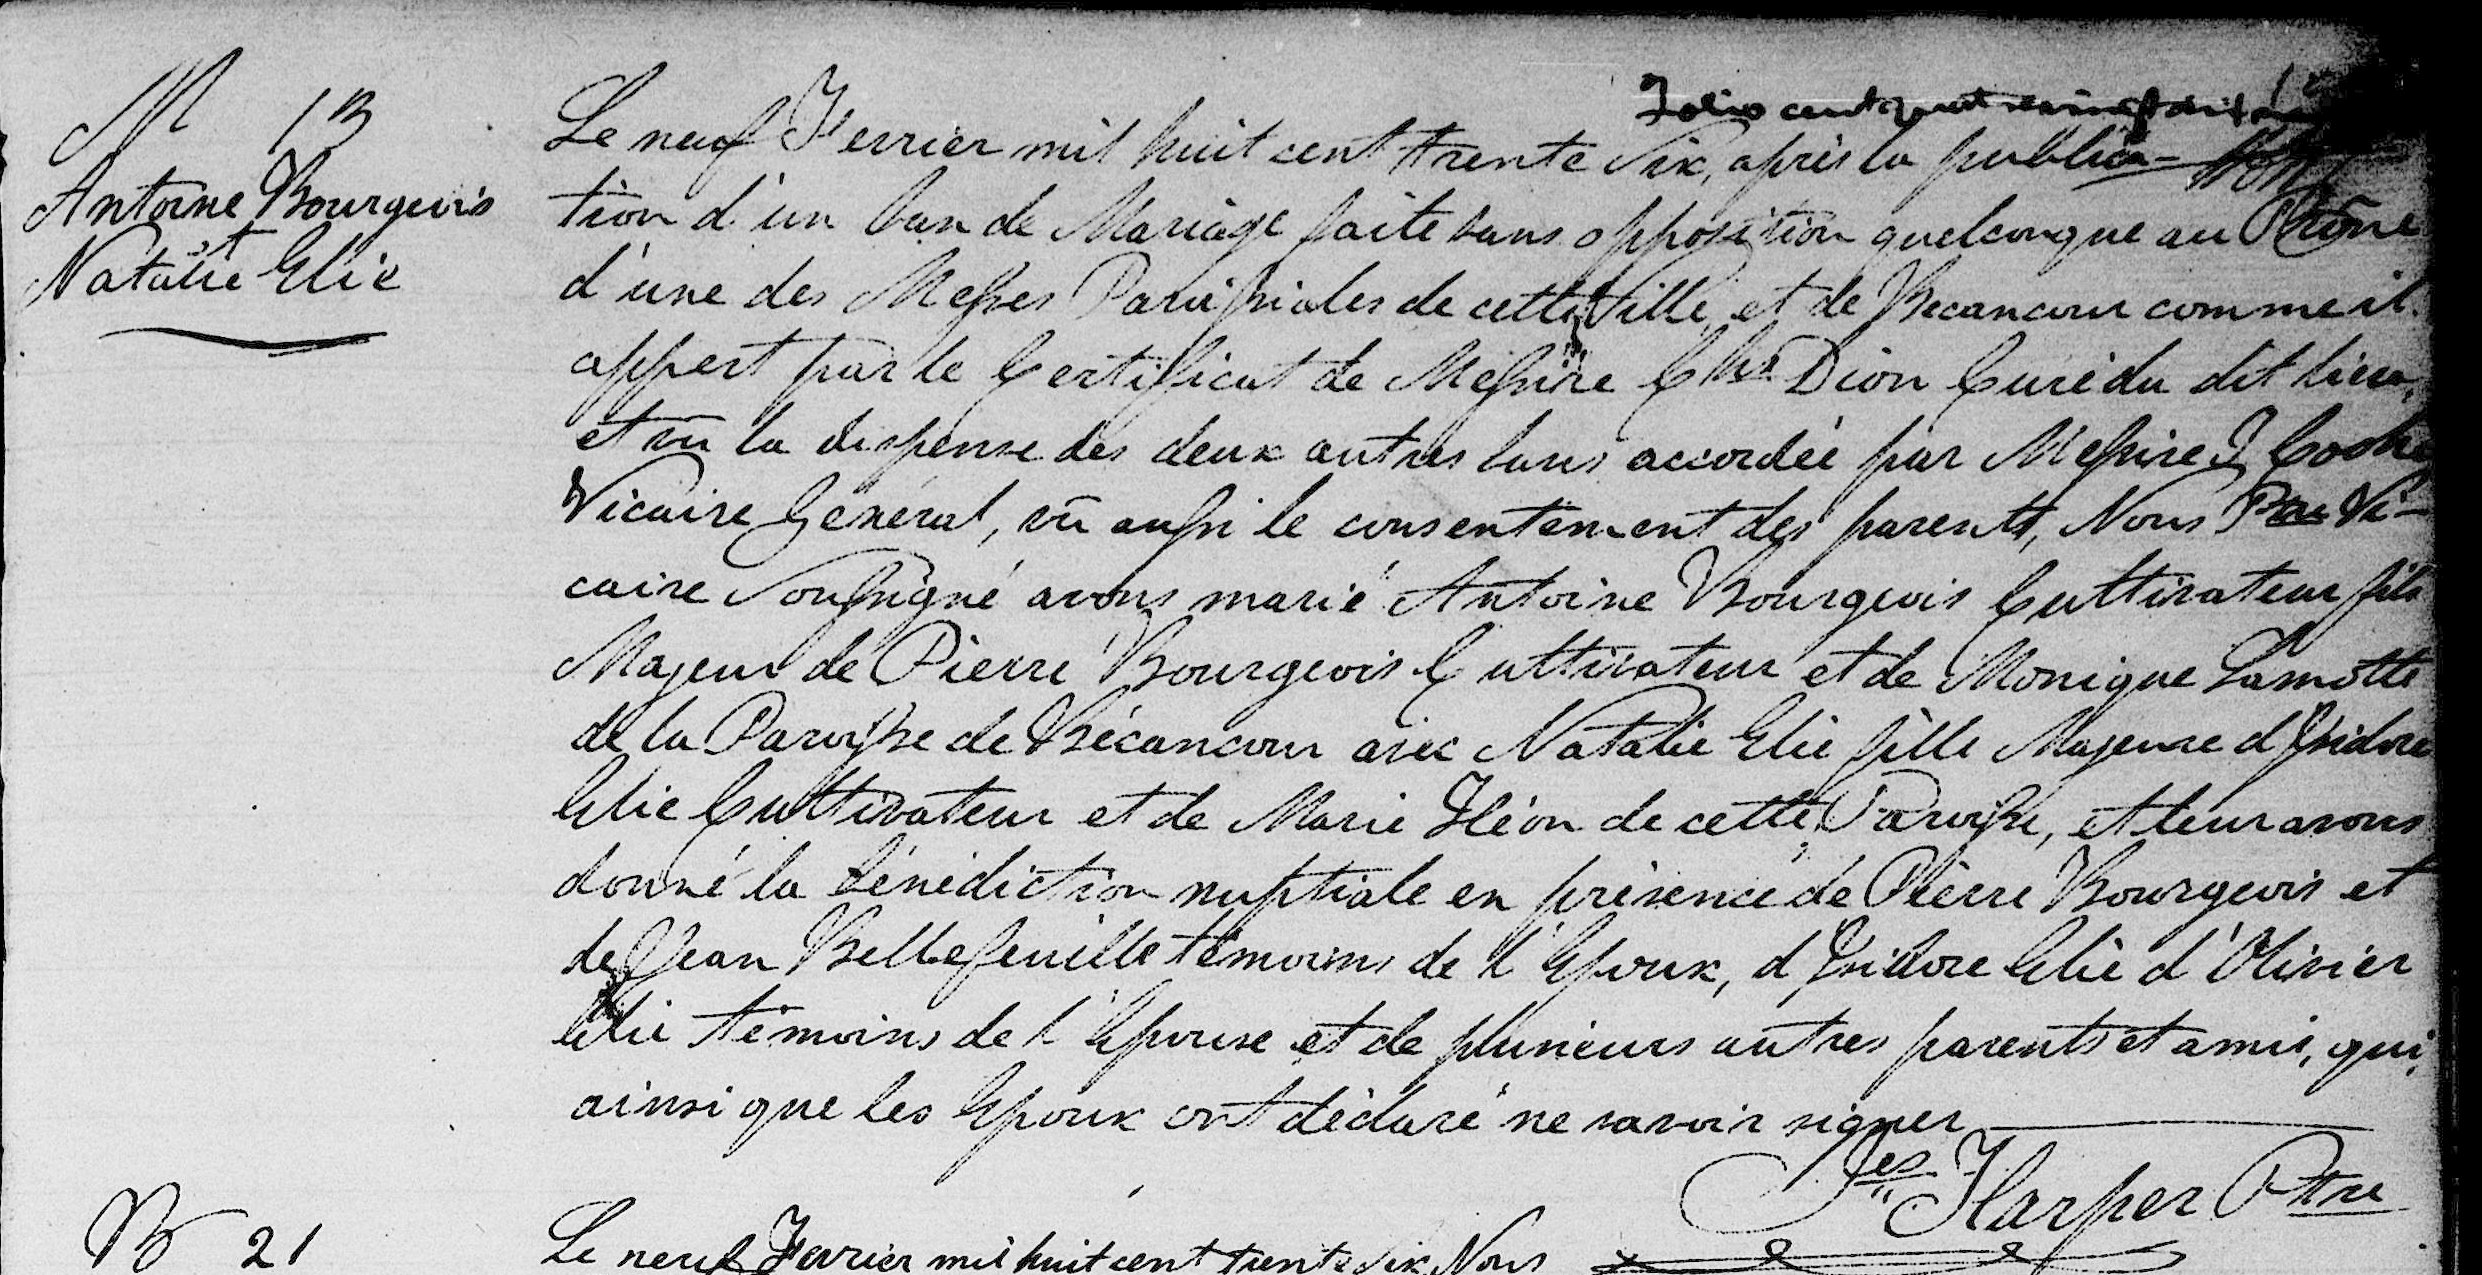 Folio cent quatrevingt dix
M 13
Antoine Bourgeois
et
Natalie Elie
Le neuf Fevrier mil huit cent trente Six, après la publica=
tion d'un ban de Mariage faite sans opposition quelconque au Prône
d'une des Messes Paroissiales de cette Ville, et de Becancour comme il
appert par le Certificat de Messire Chs Dion Curé du dit lieu,
et vû la dispense des deux autres bans accordée par Messire T Cooke
Vicaire Général, vû aussi le consentement des parents, Nous Ptre Vi-
caire Soussigné avons marié Antoine Bourgeois Cultivateur fils
Majeur de Pierre Bourgeois Cultivateur et de Monique Lamotte
de la Paroisse de Bécancour avec Natalie Elie fille Majeure d'Isidore
Elie Cultivateur et de Marie Héon de cette Paroisse, et leur avons
donné la bénédiction nuptiale en présence de Pierre Bourgeois et
de Jean Bellefeuille témoins de l'Epoux, d'Isidore Elie d'Olivier
Elie témoins de l'Epouse et de plusieurs autres parents et amis, qui,
ainsi que les Epoux ont déclaré ne savoir signer
Jes Harper Ptre
B 21
Le neuf Fevrier mil huit cent trente Six, Nous